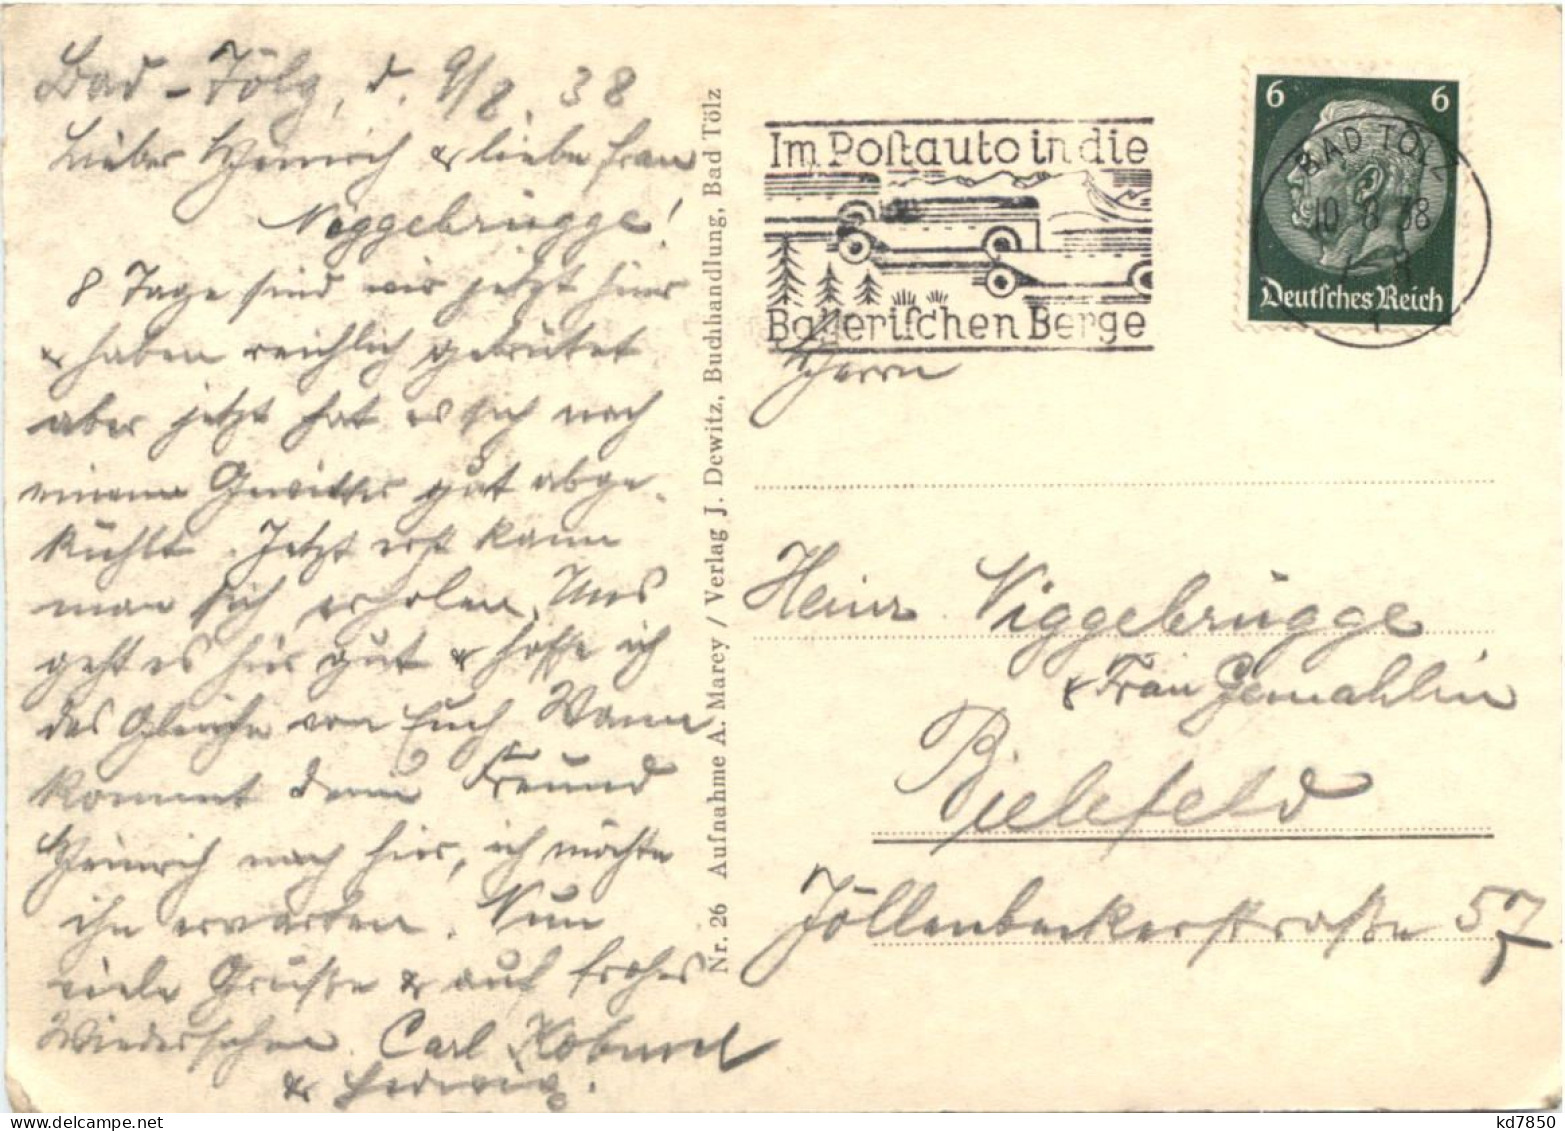 Bad-Tölz, d. 9/8. 38
Lieber Heinrich & liebe Frau
Niggebrügge!
8 Tage sind wir jetzt hier
& haben reichlich gebrütet
aber jetzt hat es sich nach
einem Gewitter gut abge-
kühlt. Jetzt erst kann
man sich erholen. Uns
geht es hier gut & hoffe ich
das Gleiche von Euch. Wann
kommt dein Freund
Heinrich nach hier, ich möchte
ihn erwarten. Nun
viele Grüße & auf frohes
Wiedersehen Carl
& Hedwig.
Nr. 26 Aufnahme A. Marey / Verlag J. Dewitz, Buchhandlung, Bad Tölz
Im Postauto in die
Bayerischen Berge
6 6
Deutsches Reich
BAD TÖLZ
10 8 38
Herrn
Heinr Niggebrügge
& Frau Gemahlin
Bielefeld
Jöllenbeckerstraße 57
kd7850